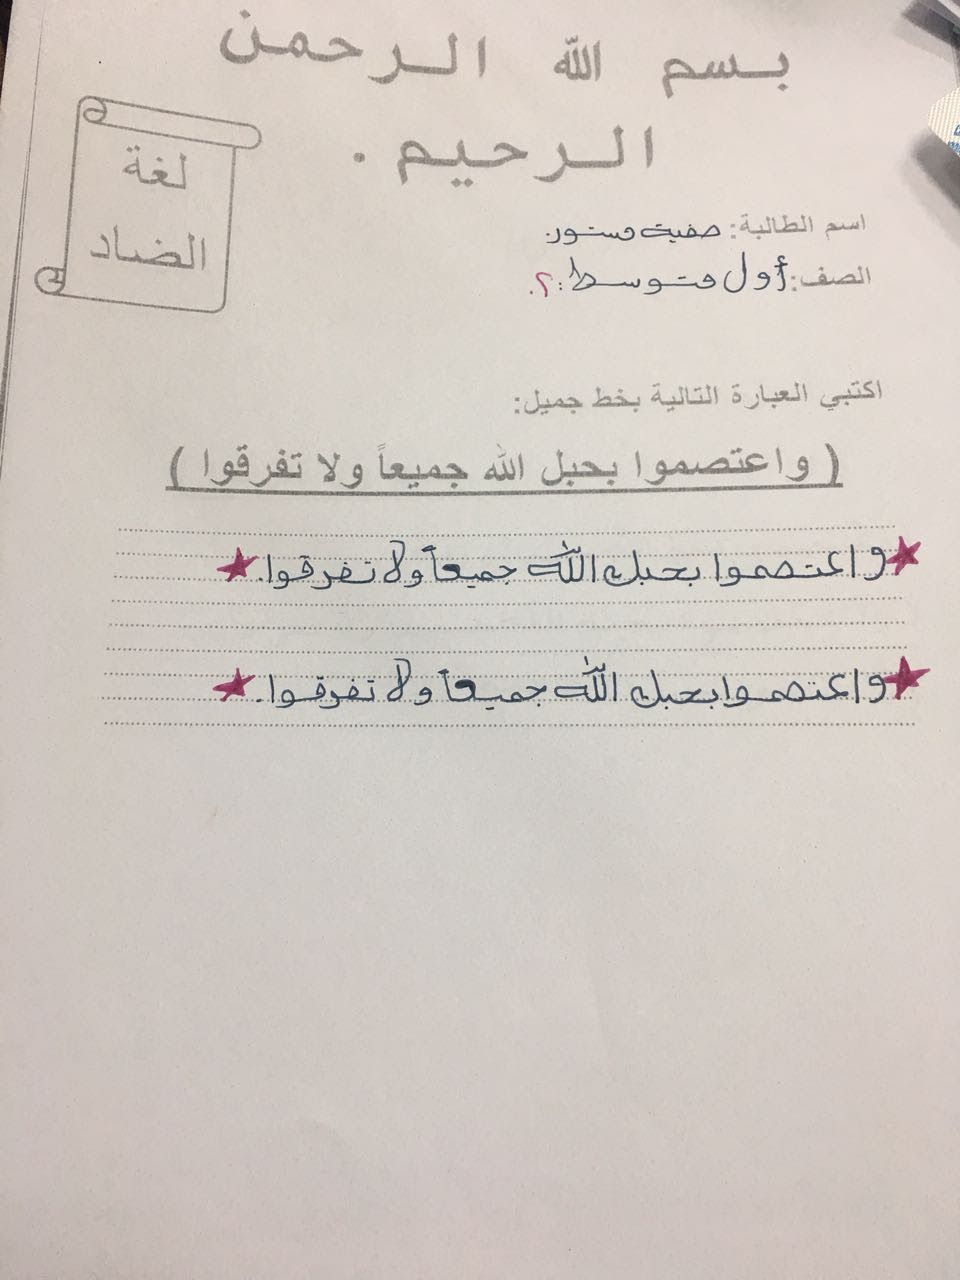 بسم الله الرحمن
الرحيم .
لغة
الضاد
اسم الطالبة: صفية مستور
الصف: أول متوسط : ٢.
اكتبي العبارة التالية بخط جميل:
( واعتصموا بحبل الله جميعاً ولا تفرقوا )
واعتصموا بحبل الله جميعاً ولا تفرقوا.
واعتصموا بحبل الله جميعاً ولا تفرقوا.